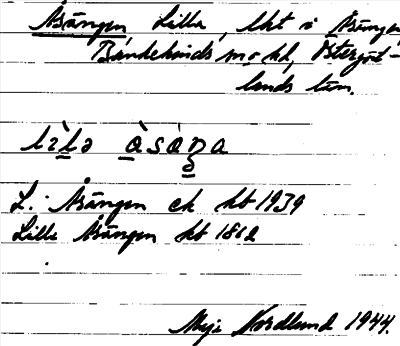 Åsängen, Lilla, lht i Åsängen
Bankekinds sn o hd, Östergöt-
lands län.
L. Åsängen ek kt 1939
Lilla Åsängen kt 1862
Maja Nordlund 1944.